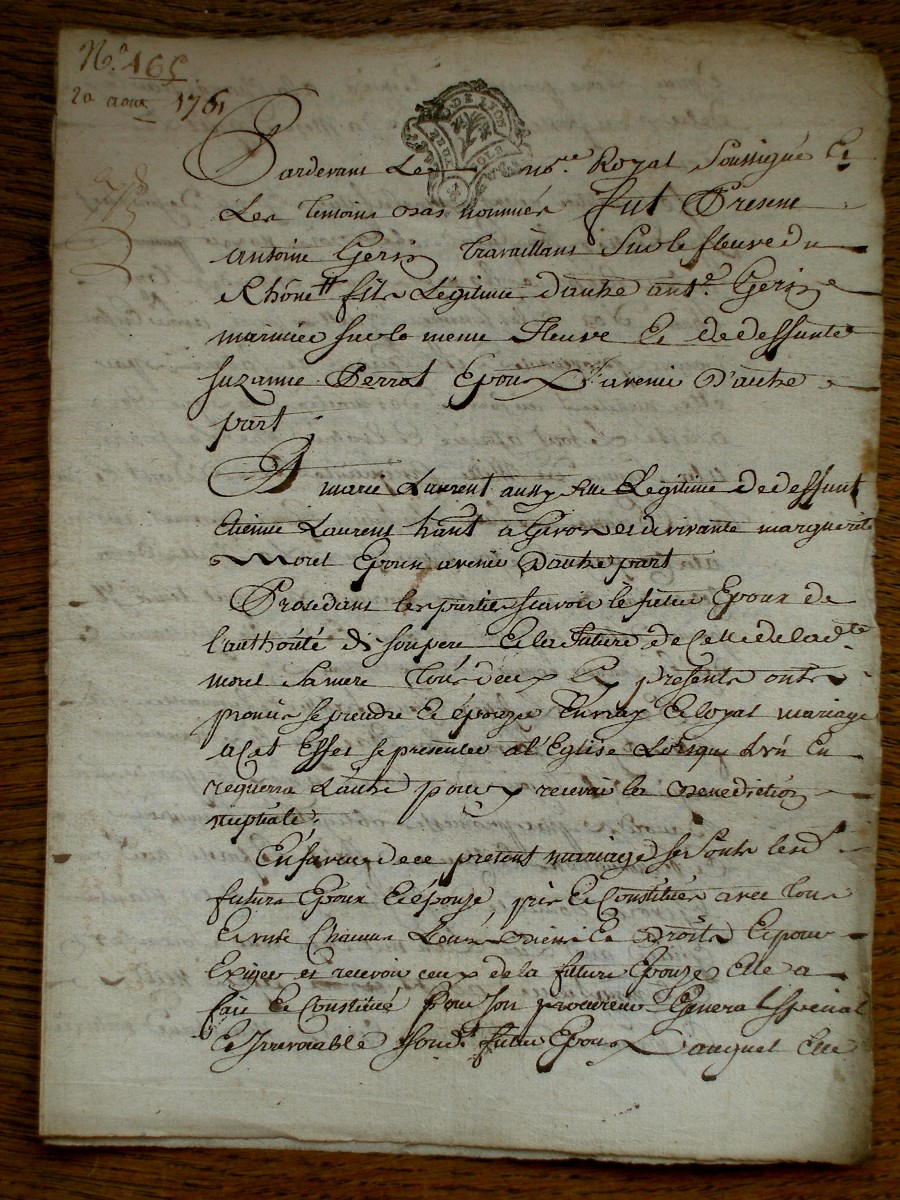 N.o 165
20 aoust 1761
DE LYON
Pardevant Le no.re Royal Soussigné Et
Les temoins bas nommés fut Present
antoine Gerin travaillant Sur le fleuve du
Rhône fils Légitime d'autre ant.e Gerin
marinier sur le meme fleuve Et de deffunte
Suzanne Perrot Epoux avenir D'autre
part
Et marie Laurent aussy fille Legitime de deffunt
Etienne Laurent hant a Givors et de vivante marguerite
Moret Epouse avenir d'autre part
Procedant les parties scavoir le futur Epoux de
l'authorité de son pere Et la future de Celle de lad.te
moret sa mere tous deux Ici presents ont
promis se prendre Et épouser En vray Et loyal mariage
a Cet Effet se presenter a l'Eglise Lorsque L'un En
requerra L'autre pour y recevoir la Benediction
nuptiale.
En faveur de ce present mariage se sont lesd.
futurs Epoux Et épouse, pris Et Constitués avec tous
Et un Chacun Leurs Biens Et Droits Et pour
Exiger et recevoir ceux de la future Epouse Elle a
fait Et Constitué Pour son procureur General Special
Et Irrevocable sond.t futur Epoux auquel Elle